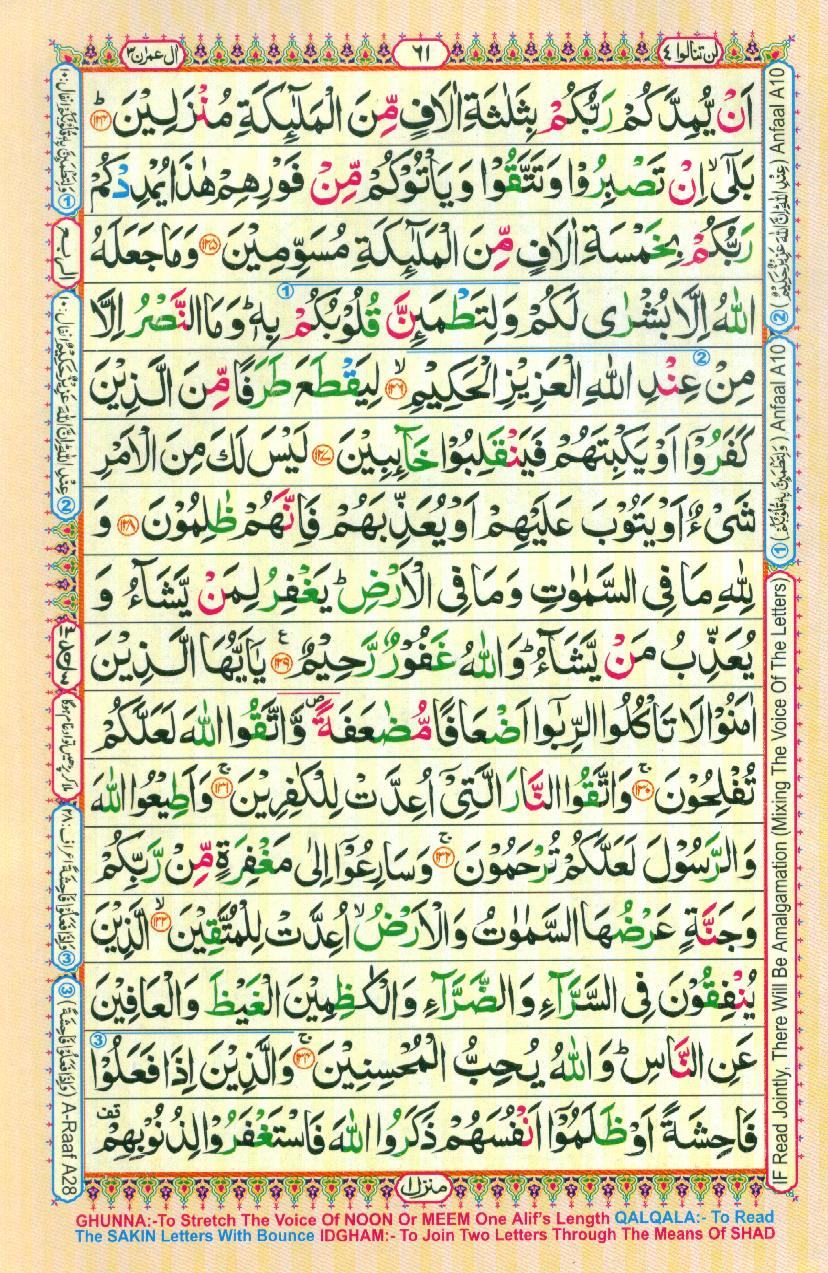 لن تنالوا ٤
٦١
اٰل عمرٰن ٣
اَنْ يُّمِدَّكُمْ رَبُّكُمْ بِثَلٰثَةِ اٰلَافٍ مِّنَ الْمَلٰٓئِكَةِ مُنْزَلِيْنَ ؕ﴿۱۲۴﴾
بَلٰۤى ۙ اِنْ تَصْبِرُوْا وَتَتَّقُوْا وَيَاْتُوْكُمْ مِّنْ فَوْرِهِمْ هٰذَا يُمْدِدْكُمْ
رَبُّكُمْ بِخَمْسَةِ اٰلَافٍ مِّنَ الْمَلٰٓئِكَةِ مُسَوِّمِيْنَ ﴿۱۲۵﴾ وَمَا جَعَلَهُ
اللّٰهُ اِلَّا بُشْرٰى لَكُمْ وَلِتَطْمَئِنَّ قُلُوْبُكُمْ بِهٖ ؕ وَمَا النَّصْرُ اِلَّا
مِنْ عِنْدِ اللّٰهِ الْعَزِيْزِ الْحَكِيْمِ ۙ﴿۱۲۶﴾ لِيَقْطَعَ طَرَفًا مِّنَ الَّذِيْنَ
كَفَرُوْۤا اَوْ يَكْبِتَهُمْ فَيَنْقَلِبُوْا خَآئِبِيْنَ ﴿۱۲۷﴾ لَيْسَ لَكَ مِنَ الْاَمْرِ
شَىْءٌ اَوْ يَتُوْبَ عَلَيْهِمْ اَوْ يُعَذِّبَهُمْ فَاِنَّهُمْ ظٰلِمُوْنَ ﴿۱۲۸﴾ وَ
لِلّٰهِ مَا فِى السَّمٰوٰتِ وَمَا فِى الْاَرْضِ ؕ يَغْفِرُ لِمَنْ يَّشَآءُ وَ
يُعَذِّبُ مَنْ يَّشَآءُ ؕ وَاللّٰهُ غَفُوْرٌ رَّحِيْمٌ ﴿۱۲۹﴾ يٰۤاَيُّهَا الَّذِيْنَ
اٰمَنُوْا لَا تَاْكُلُوا الرِّبٰٓوا اَضْعَافًا مُّضٰعَفَةً ۪ وَّاتَّقُوا اللّٰهَ لَعَلَّكُمْ
تُفْلِحُوْنَ ۚ﴿۱۳۰﴾ وَاتَّقُوا النَّارَ الَّتِىْۤ اُعِدَّتْ لِلْكٰفِرِيْنَ ۚ﴿۱۳۱﴾ وَاَطِيْعُوا اللّٰهَ
وَالرَّسُوْلَ لَعَلَّكُمْ تُرْحَمُوْنَ ۚ﴿۱۳۲﴾ وَسَارِعُوْۤا اِلٰى مَغْفِرَةٍ مِّنْ رَّبِّكُمْ
وَجَنَّةٍ عَرْضُهَا السَّمٰوٰتُ وَالْاَرْضُ ۙ اُعِدَّتْ لِلْمُتَّقِيْنَ ۙ﴿۱۳۳﴾ الَّذِيْنَ
يُنْفِقُوْنَ فِى السَّرَّآءِ وَالضَّرَّآءِ وَالْكٰظِمِيْنَ الْغَيْظَ وَالْعَافِيْنَ
عَنِ النَّاسِ ؕ وَاللّٰهُ يُحِبُّ الْمُحْسِنِيْنَ ۚ﴿۱۳۴﴾ وَالَّذِيْنَ اِذَا فَعَلُوْا
فَاحِشَةً اَوْ ظَلَمُوْۤا اَنْفُسَهُمْ ذَكَرُوا اللّٰهَ فَاسْتَغْفَرُوْا لِذُنُوْبِهِمْ قف
منزل ۱
② (عِنْدِ اللّٰهِ اِنَّ اللّٰهَ عَزِيْزٌ حَكِيْمٌ) Anfaal A10
① (وَلِتَطْمَئِنَّ بِهٖ قُلُوْبُكُمْ) Anfaal A10
IF Read Jointly, There Will Be Amalgamation (Mixing The Voice Of The Letters)
① وَلِتَطْمَئِنَّ بِهٖ قُلُوْبُكُمْ انفال: ١٠
② عِنْدِ اللّٰهِ اِنَّ اللّٰهَ عَزِيْزٌ حَكِيْمٌ انفال: ١٠
ملا کر پڑھیں تو ادغام ہوگا
③ وَاِذَا فَعَلُوْا فَاحِشَةً اعراف: ٢٨
③ (وَاِذَا فَعَلُوْا فَاحِشَةً) A-Raaf A28
GHUNNA:-To Stretch The Voice Of NOON Or MEEM One Alif's Length QALQALA:- To Read
The SAKIN Letters With Bounce IDGHAM:- To Join Two Letters Through The Means Of SHAD